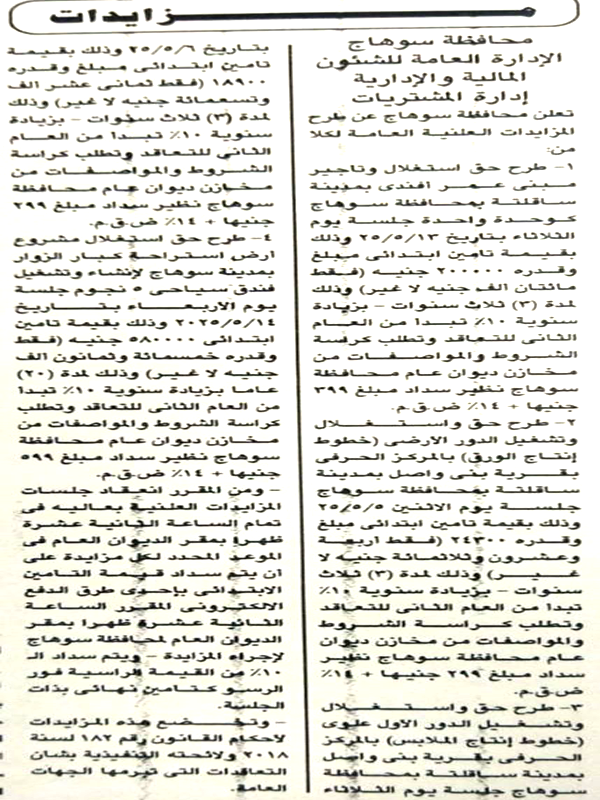 مـــــزايدات
محافظة سوهاج
الإدارة العامة للشئون
المالية والإدارية
إدارة المشتريات
تعلن محافظة سوهاج عن طرح
المزايدات العلنية العامة لكلا
من:
١- طرح حق استغلال وتاجير
مبنى عمر افندى بمدينة
ساقلتة بمحافظة سوهاج
كوحدة واحدة جلسة يوم
الثلاثاء بتاريخ ٢٥/٥/١٣ وذلك
بقيمة تامين ابتدائى مبلغ
وقدره ٢٠٠٠٠٠ جنيه (فقط
مائتان الف جنيه لا غير) وذلك
لمدة (٣) ثلاث سنوات - بزيادة
سنوية ١٠٪ تبدا من العام
الثانى للتعاقد وتطلب كراسة
الشروط والمواصفات من
مخازن ديوان عام محافظة
سوهاج نظير سداد مبلغ ٣٩٩
جنيها + ١٤٪ ض.ق.م.
٢- طرح حق واستغلال
وتشغيل الدور الارضى (خطوط
إنتاج الورق) بالمركز الحرفى
بقرية بنى واصل بمدينة
ساقلتة بمحافظة سوهاج
جلسة يوم الاثنين ٢٥/٥/٥
وذلك بقيمة تامين ابتدائى مبلغ
وقدره ٢٤٣٠٠ (فقط اربعة
وعشرون وثلاثمائة جنيه لا
غير) وذلك لمدة (٣) ثلاث
سنوات - بزيادة سنوية ١٠٪
تبدا من العام الثانى للتعاقد
وتطلب كراسة الشروط
والمواصفات من مخازن ديوان
عام محافظة سوهاج نظير
سداد مبلغ ٢٩٩ جنيها + ١٤٪
ض.ق.م.
٣- طرح حق واستغلال
وتشغيل الدور الاول علوى
(خطوط إنتاج الملابس) بالمركز
الحرفى بقرية بنى واصل
بمدينة ساقلتة بمحافظة
سوهاج جلسة يوم الثلاثاء
بتاريخ ٢٥/٥/٦ وذلك بقيمة
تامين ابتدائى مبلغ وقدره
١٨٩٠٠ (فقط ثمانى عشر الف
وتسعمائة جنيه لا غير) وذلك
لمدة (٣) ثلاث سنوات - بزيادة
سنوية ١٠٪ تبدا من العام
الثانى للتعاقد وتطلب كراسة
الشروط والمواصفات من
مخازن ديوان عام محافظة
سوهاج نظير سداد مبلغ ٢٩٩
جنيها + ١٤٪ ض.ق.م.
٤- طرح حق استغلال مشروع
ارض استراحة كبار الزوار
بمدينة سوهاج لإنشاء وتشغيل
فندق سياحى ٥ نجوم جلسة
يوم الاربعاء بتاريخ
٢٠٢٥/٥/١٤ وذلك بقيمة تامين
ابتدائى ٥٨٠٠٠٠ جنيه (فقط
وقدره خمسمائة وثمانون الف
جنيه لا غير) وذلك لمدة (٢٠)
عاما بزيادة سنوية ١٠٪ تبدا
من العام الثانى للتعاقد وتطلب
كراسة الشروط والمواصفات من
مخازن ديوان عام محافظة
سوهاج نظير سداد مبلغ ٥٩٩
جنيها + ١٤٪ ض.ق.م.
- ومن المقرر انعقاد جلسات
المزايدات العلنية بعاليه فى
تمام الساعة الثانية عشرة
ظهرا بمقر الديوان العام فى
الموعد المحدد لكل مزايدة على
ان يتم سداد قيمة التامين
الابتدائى بإحدى طرق الدفع
الالكترونى المقرر الساعة
الثانية عشرة ظهرا بمقر
الديوان العام لمحافظة سوهاج
لإجراء المزايدة - ويتم سداد الـ
١٠٪ من القيمة الراسية فور
الرسو كتامين نهائى بذات
الجلسة.
- وتخضع هذه المزايدات
لاحكام القانون رقم ١٨٢ لسنة
٢٠١٨ ولائحته التنفيذية بشان
التعاقدات التى تبرمها الجهات
العامة.